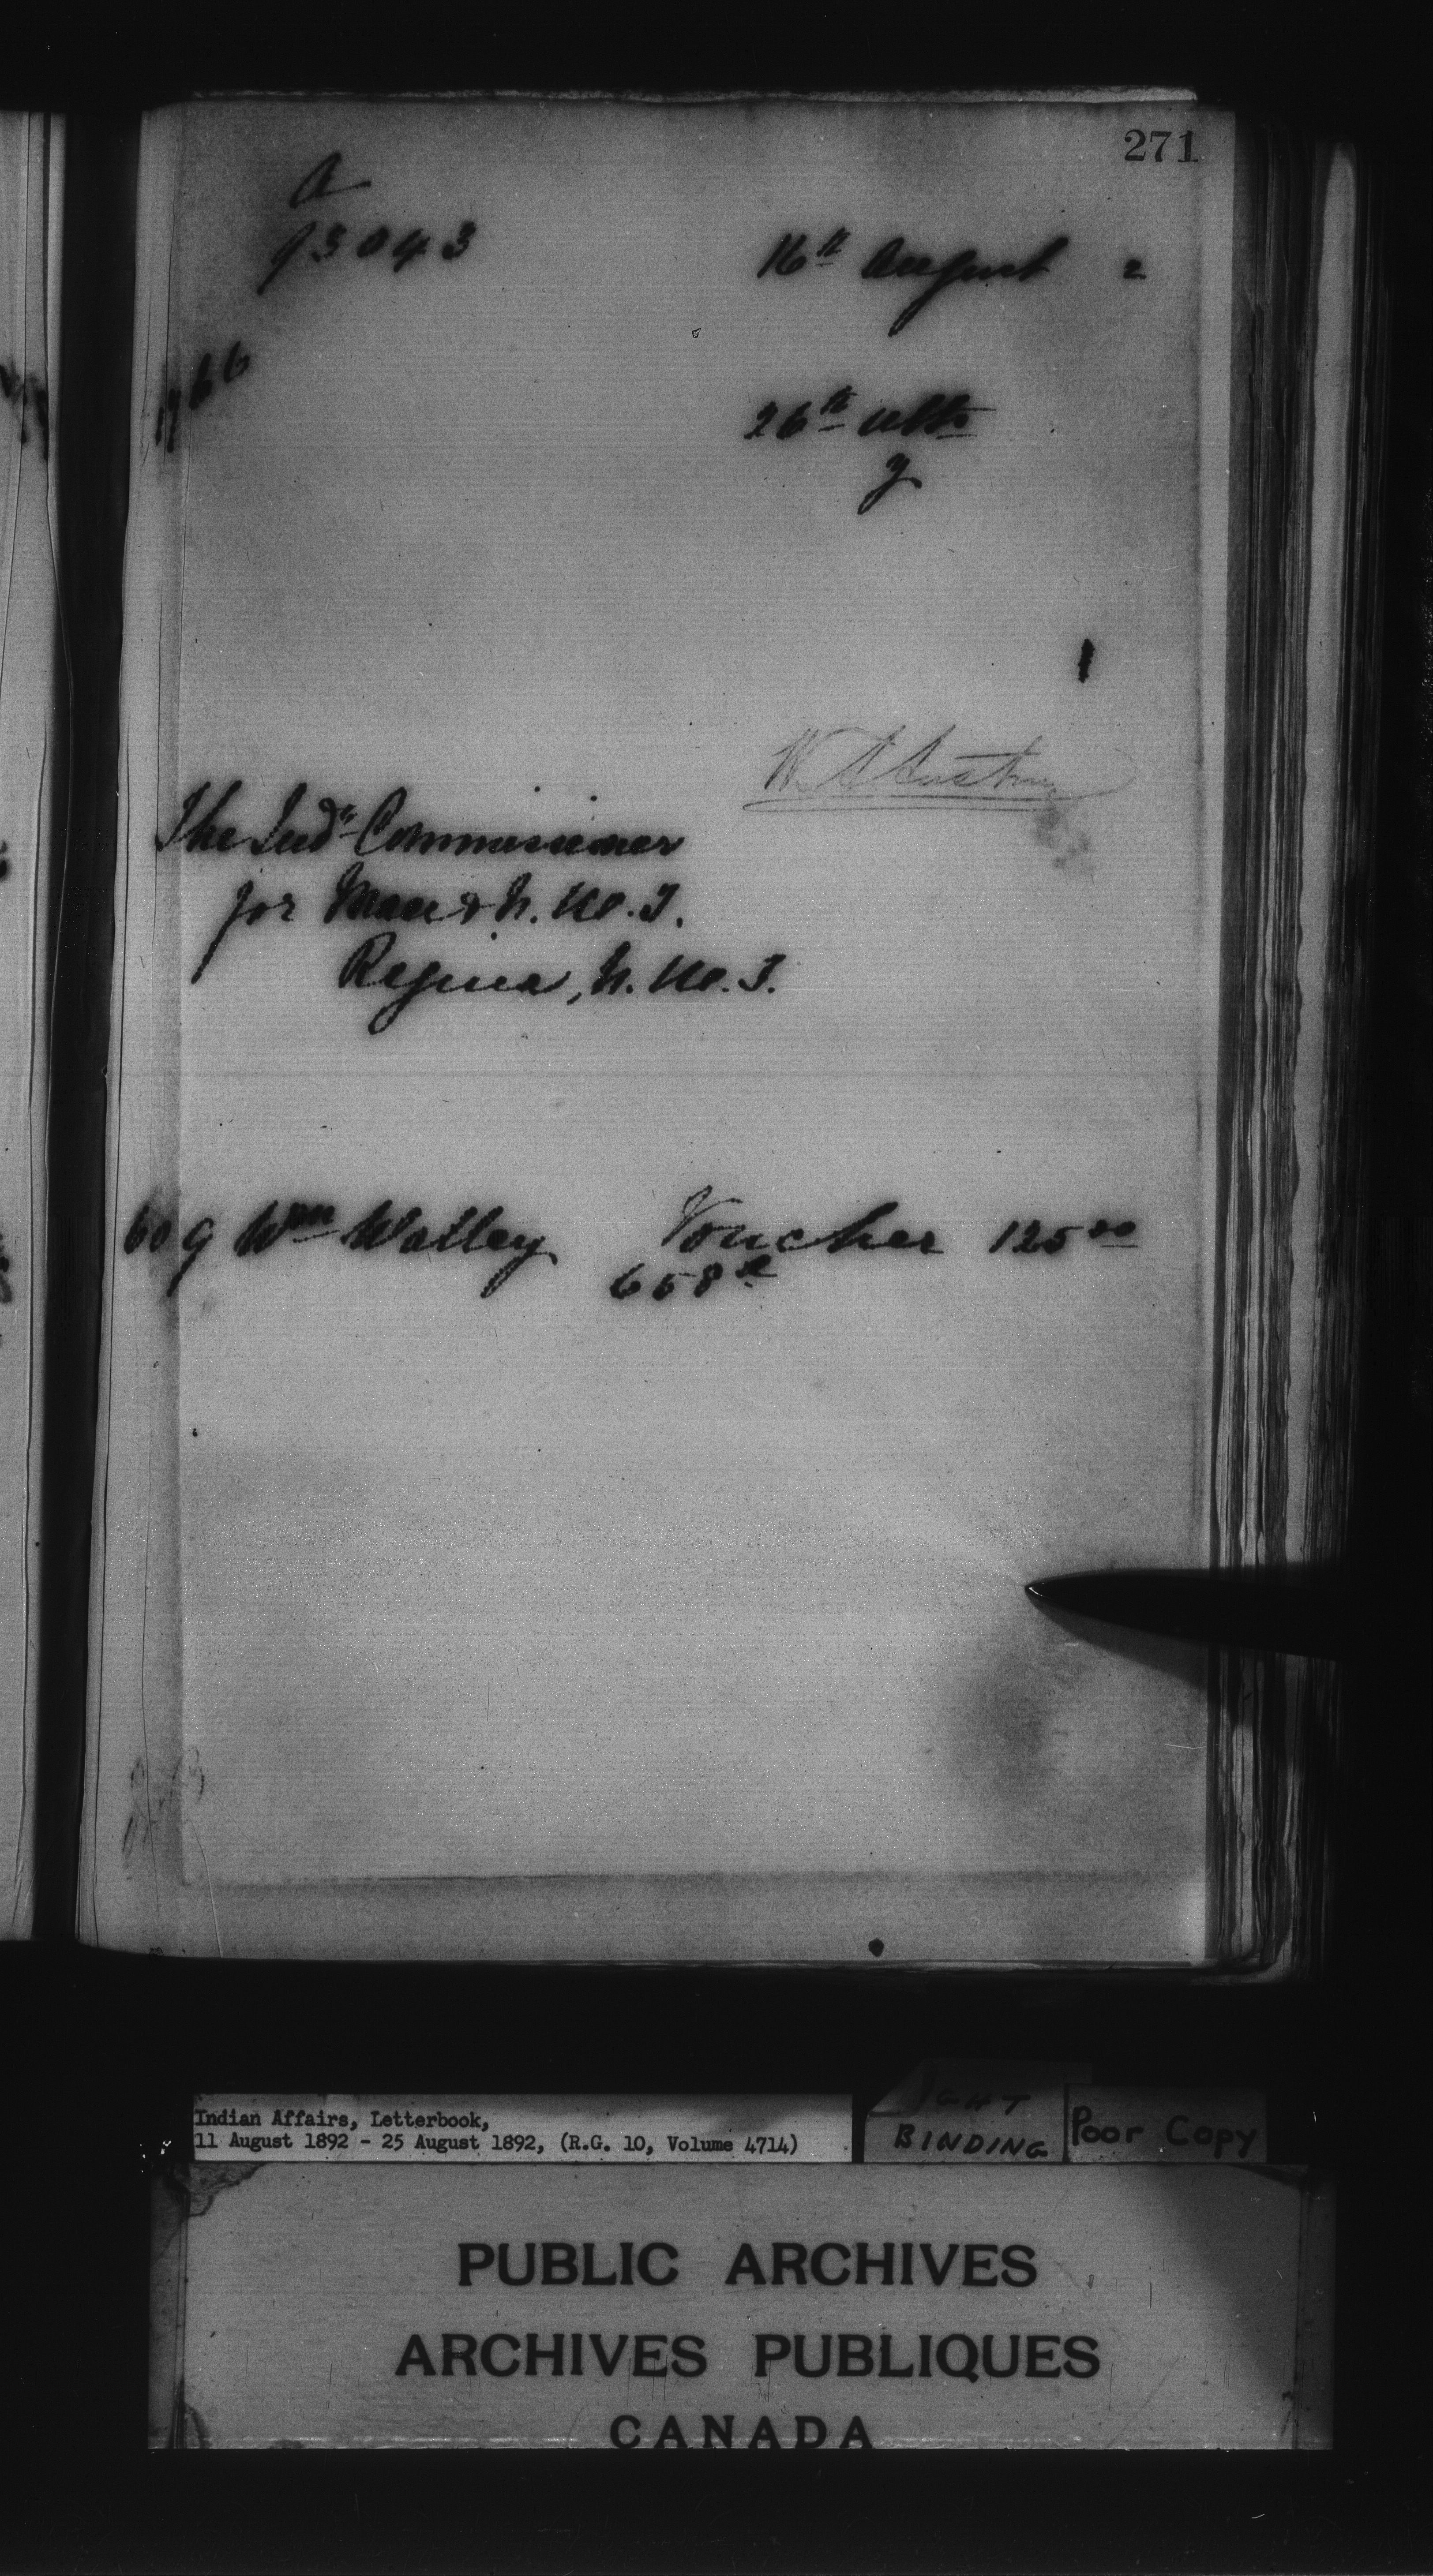 271
A
93043
16th August 2
1766
26th ulto
y
1
The Indn Commissioner
for Man & N. W. T.
Regina, N. W. T.
609 Wm Watley Voucher 125 00
658
Indian Affairs, Letterbook,
11 August 1892 - 25 August 1892, (R.G. 10, Volume 4714)
BINDING
Poor Copy
PUBLIC ARCHIVES
ARCHIVES PUBLIQUES
CANADA